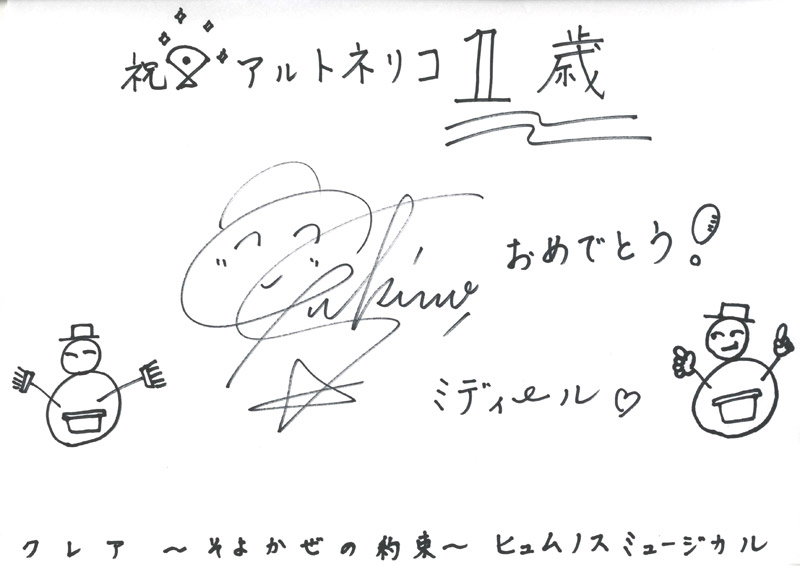 祝 アルトネリコ 1歳
おめでとう!
ミディール♡
クレア ～そよかぜの約束～ ヒュムノスミュージカル